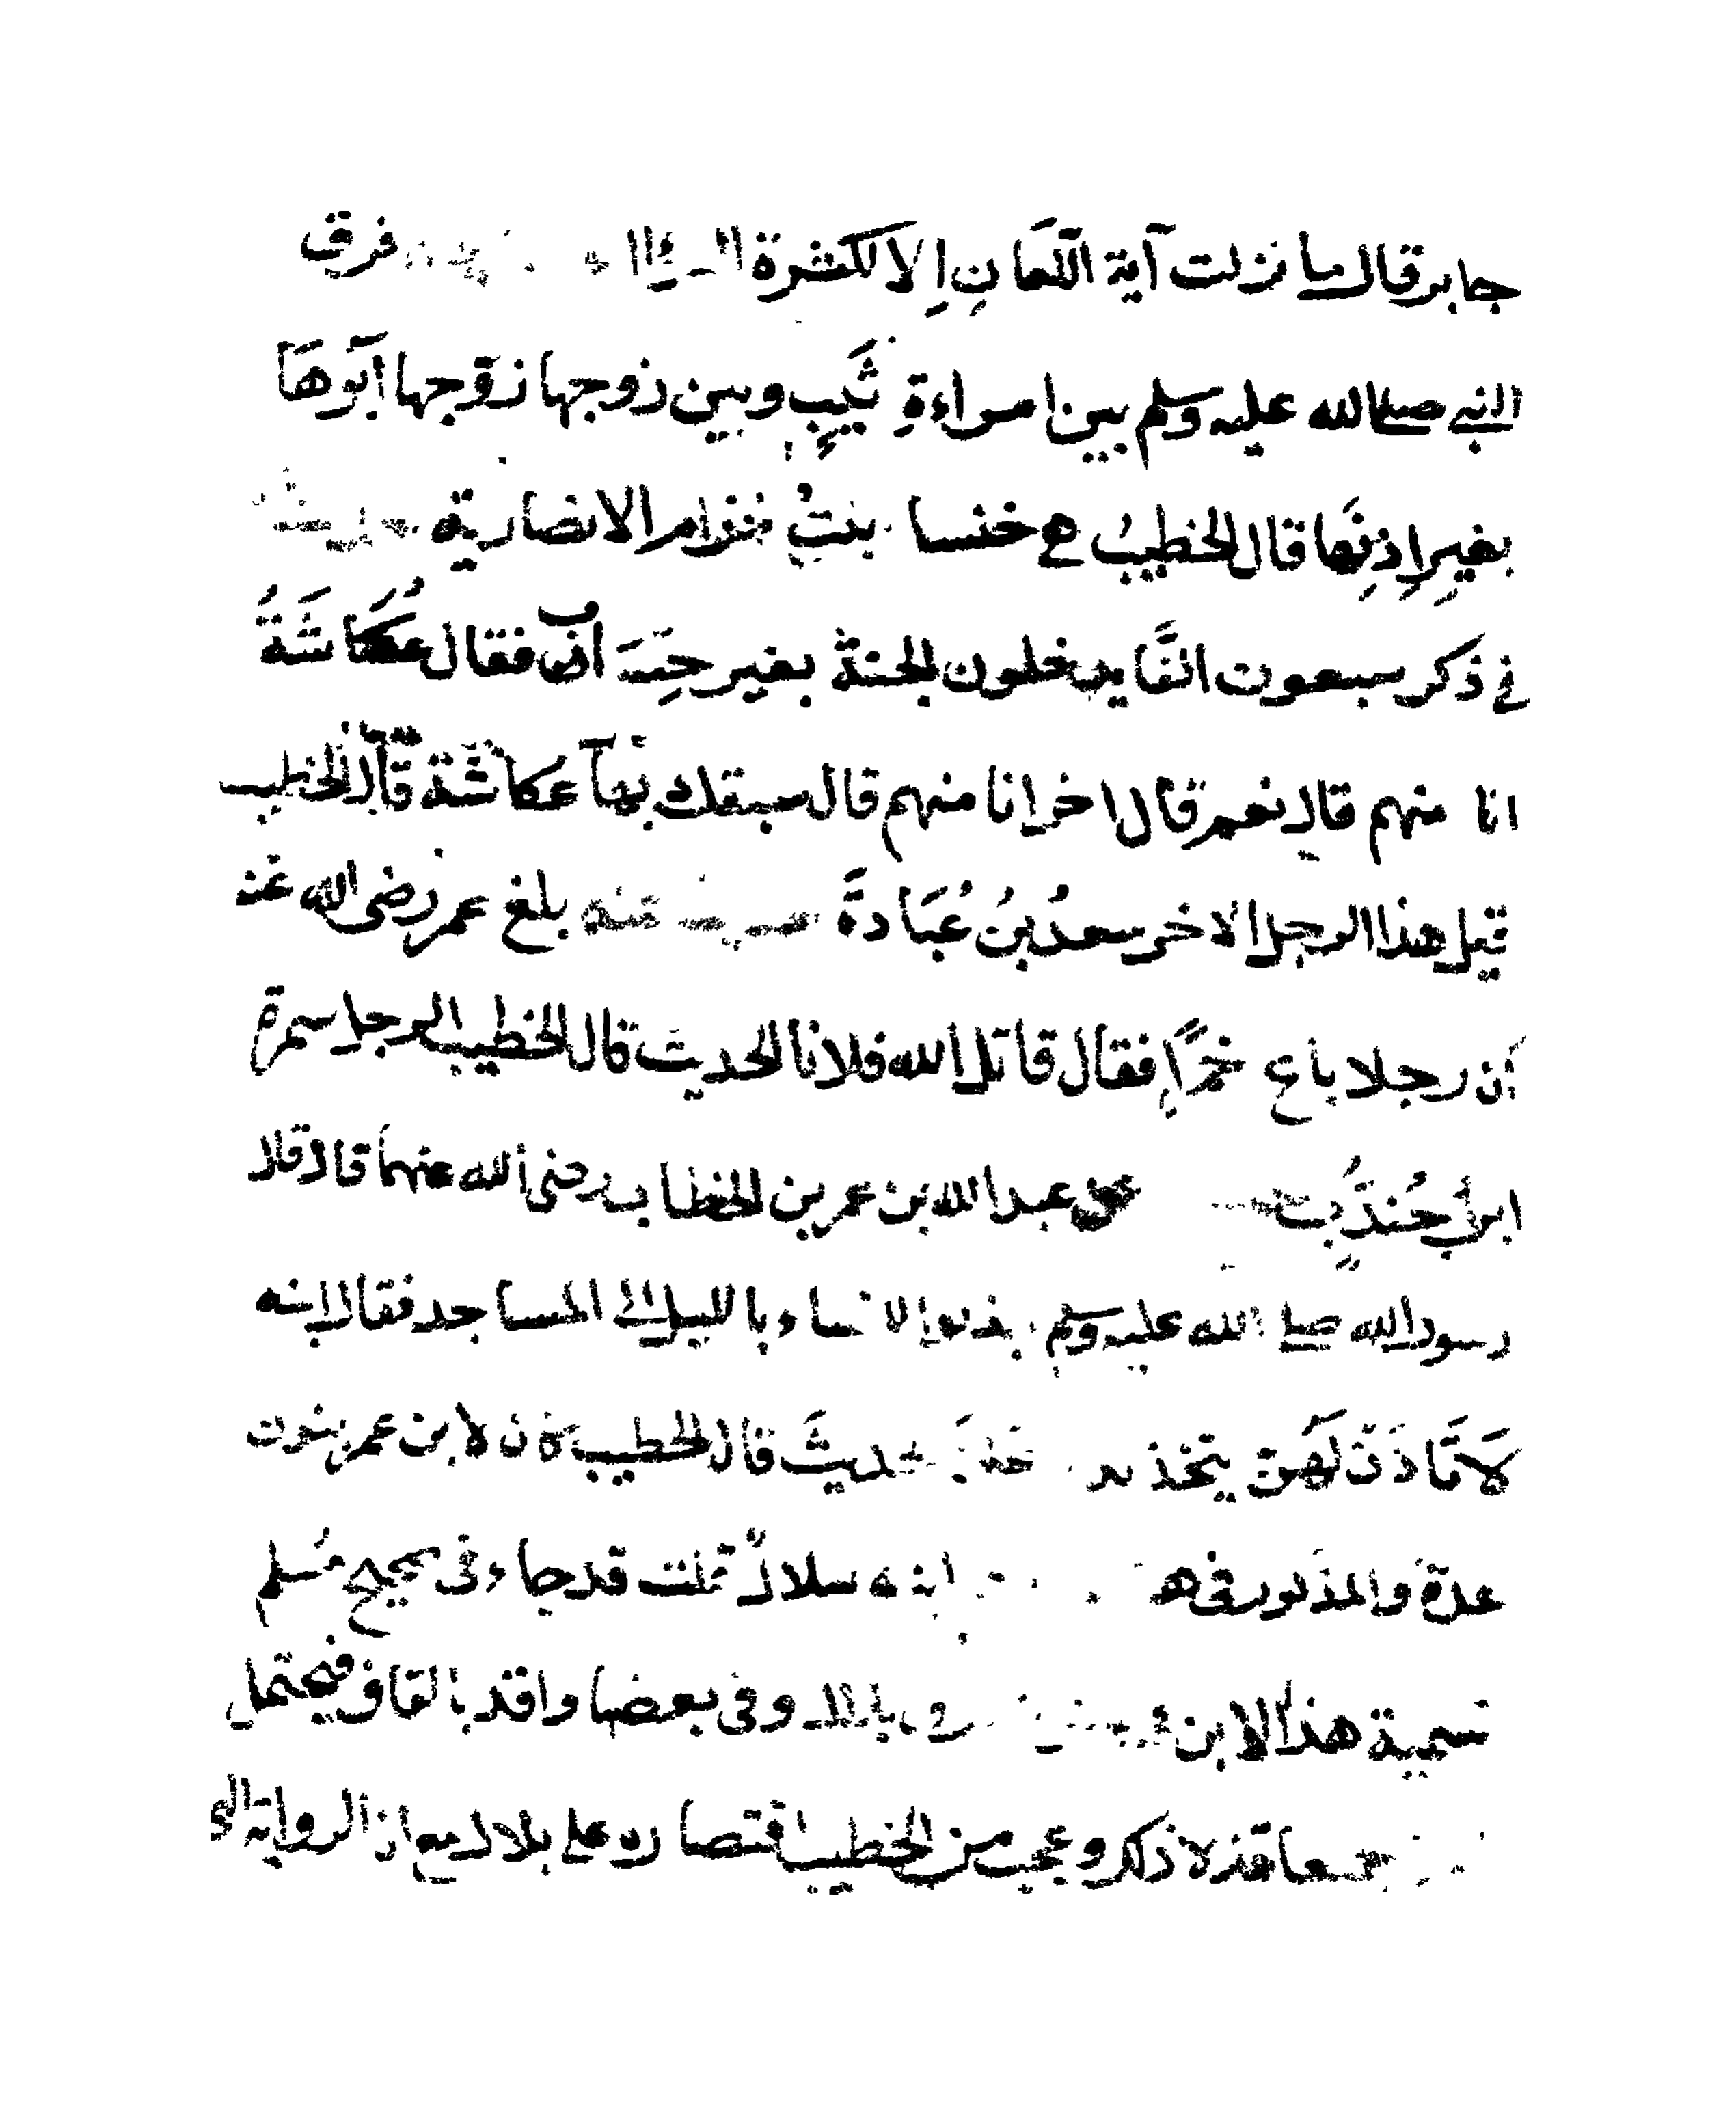 جابر قال ما نزلت آية اللعان إلا لكثرة السؤال فرق
النبي صلى الله عليه وسلم بين امراءةٍ ثَيبٍ وبين زوجها زوّجها ابَوهَا
بغيرِ إِذنِها قال الخطيبُ هي خنسا بنتُ خزام الانصارية حديث
في ذكر سبعون الفًا يدخلون الجنة بغير حساب فقال عُكَاشَةُ
انا منهم قال نعم قال اخر انا منهم قال سبقك بها عكاشة قال الخطيب
قيل هذا الرجل الاخر سعدُ بنُ عُبَادةَ حديث بلغ عمر رضى الله عنه
أن رجلا باع خمرًا فقال قاتل الله فلانا الحديث قال الخطيب الرجل سمرة
ابنُ جُندَُبٍ عن عبد الله بن عمر بن الخطاب رضى الله عنهما قال قال
رسول الله صلى الله عليه وسلم ائذنوا للنساء بالليل الى المساجد فقال ابنه
لاَ نَأذَنُ لَهُنَّ يتخذنه دغلاً الحديثَ قال الخطيب كان لابن عمر بنون
عدة والمذكور في هذا ابنه بلالٌ قلت قد جاء في صحيح مُسلم
تسمية هذا الابن بلال وفي بعضها واقد بالقاف فيحتمل
جمعا قد لا ذكر وعجب من الخطيب اقتصاره على بلال مع ان الرواية التي